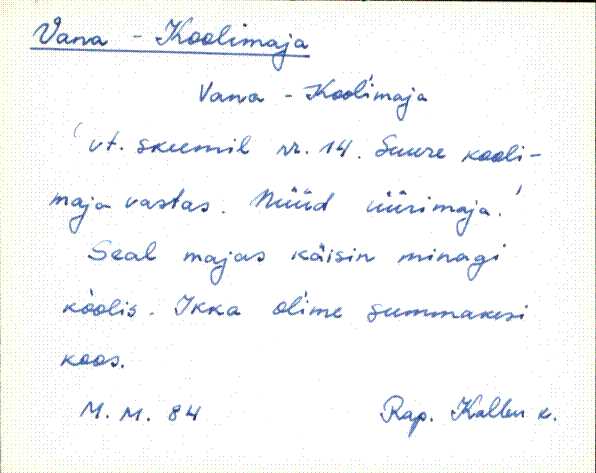 Vana - Koolimaja
Vana - Kool'imaja
'vt. skeemil nr. 14. Suure kooli-
maja vastas. Nüüd üürimaja.'
Seal majas käisin minagi
koolis. Ikka ol'ime summakesi
koos.
M. M. 84
Rap. Kallu k.